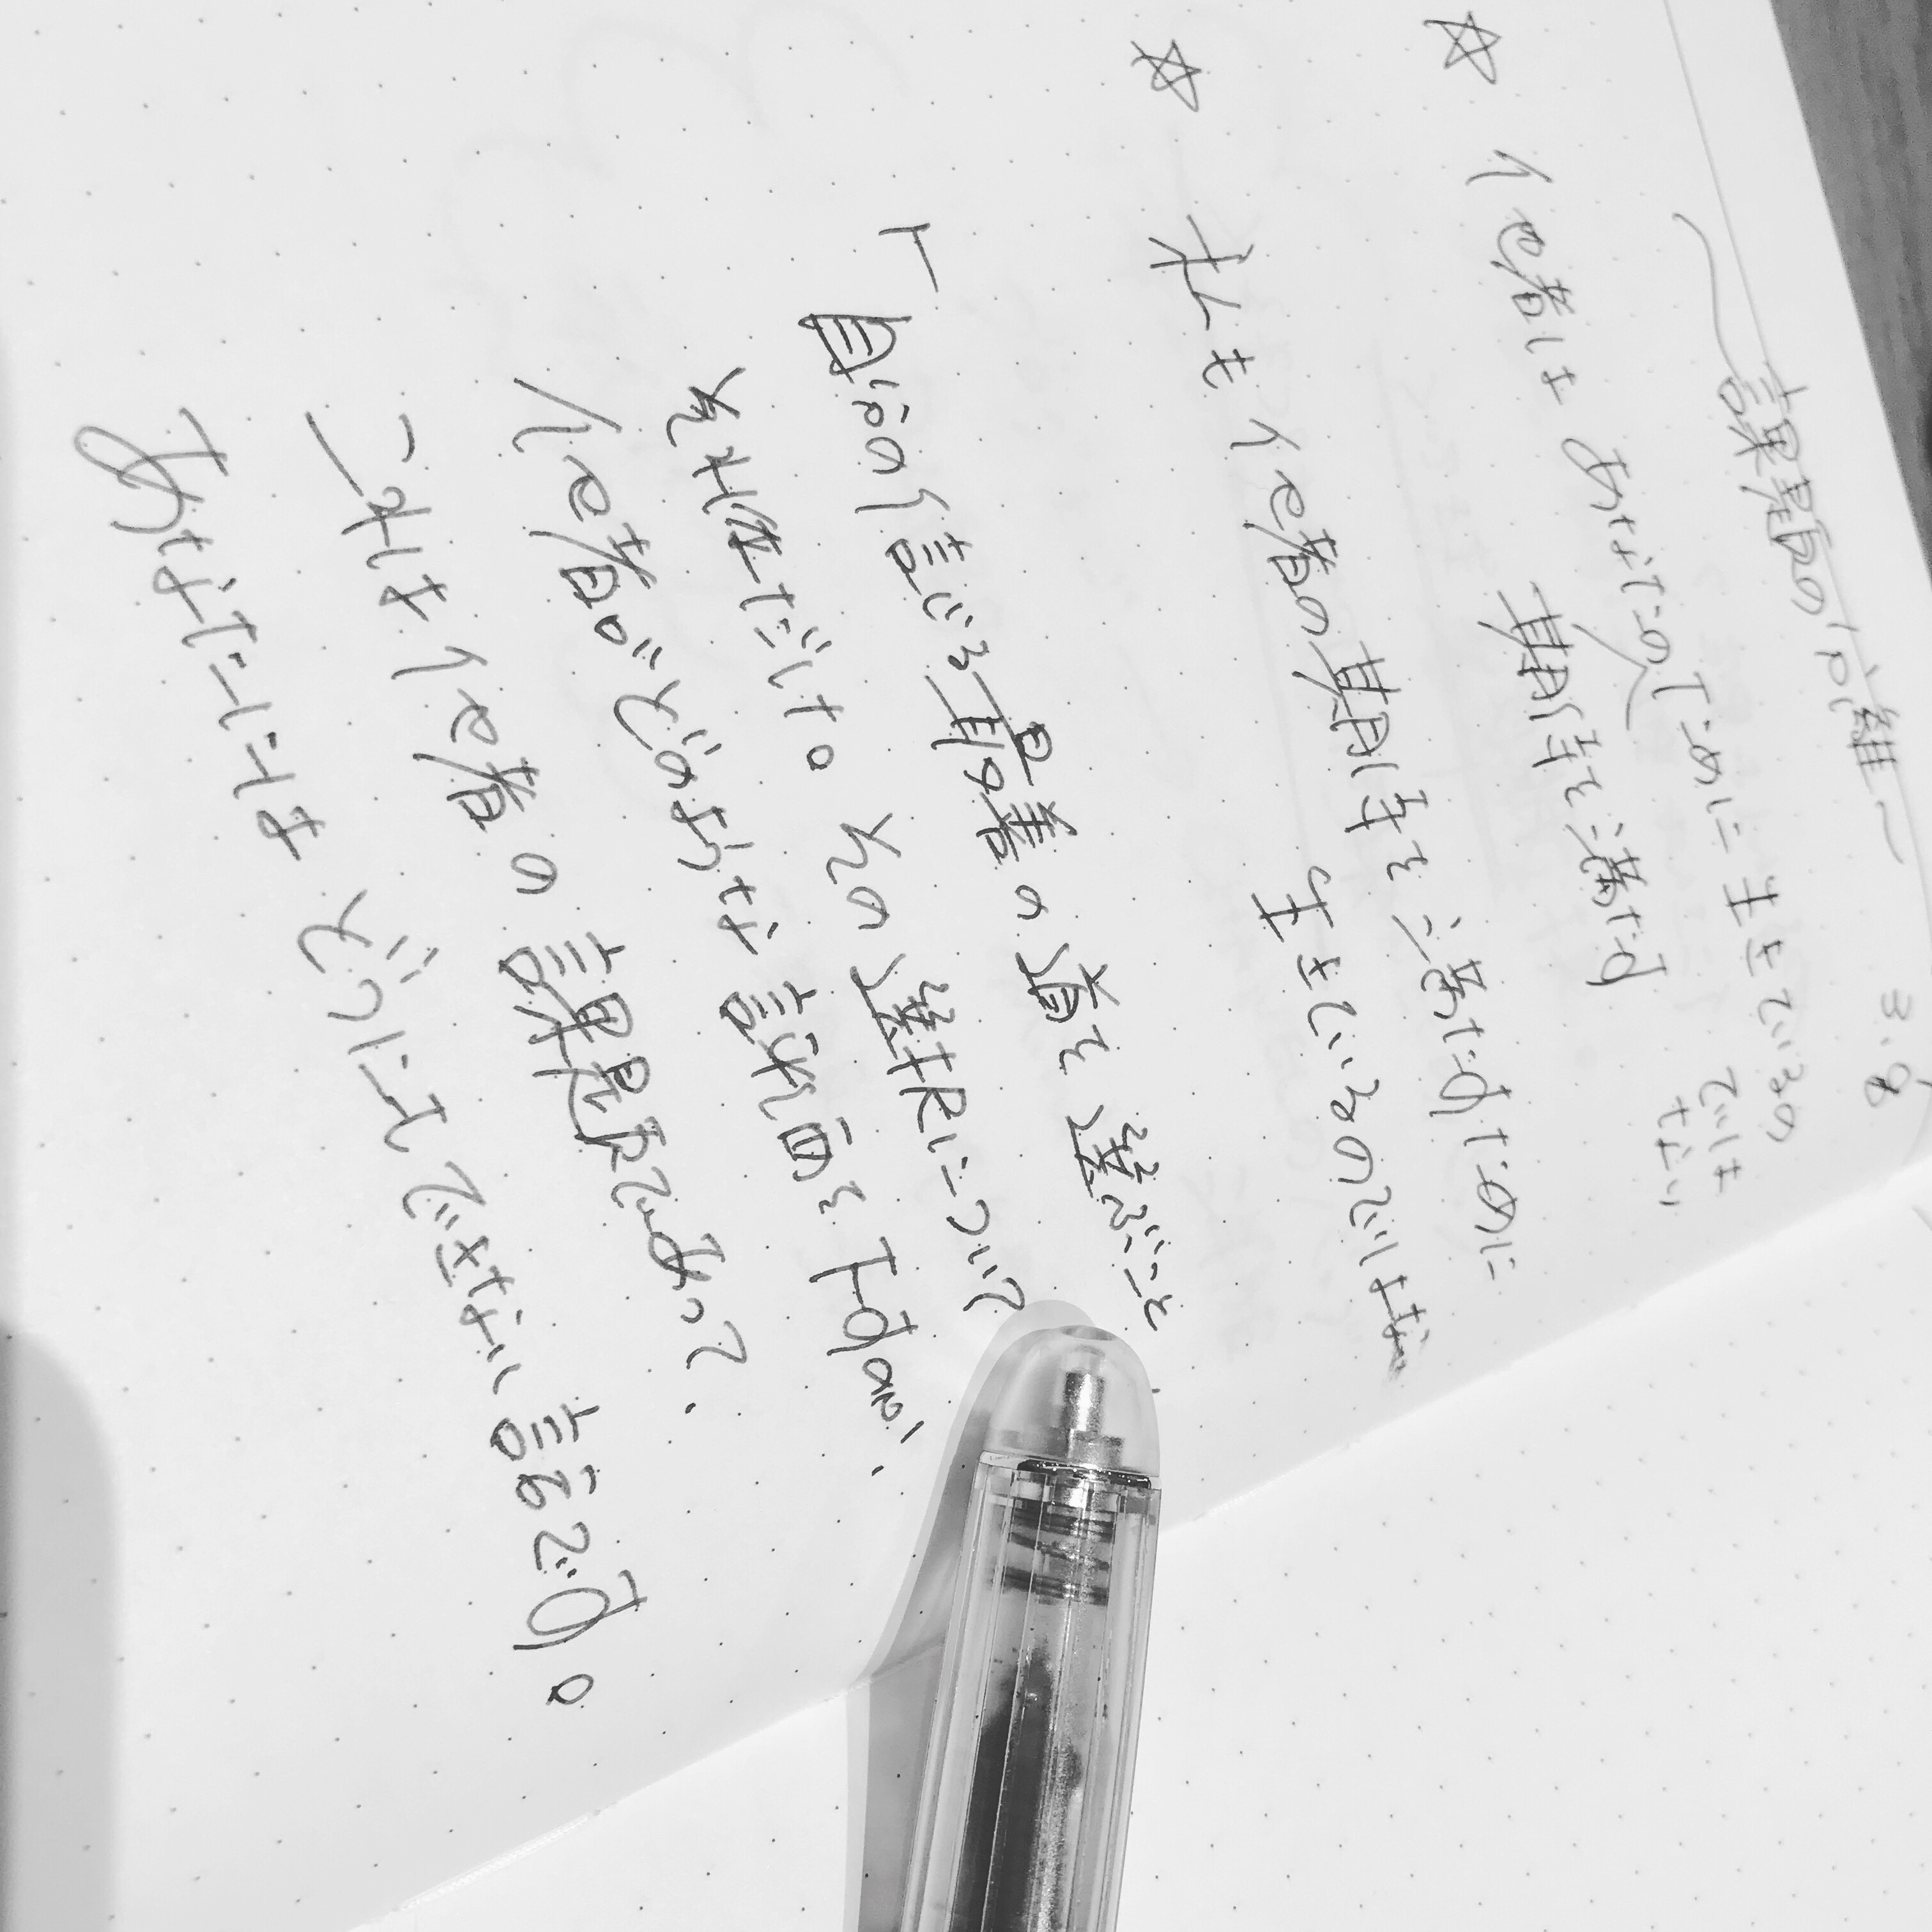 ~課題の分離~ 3.8
☆ 他者は あなたの ために生きているの
期待を満たす ではない
☆ 私も他者の期待を満たすために
生きているのではない
「自分の信じる最善の道を選ぶこと
それだけ。その選択について
他者がどのような評価を下すか、
これは他者の課題であって、
あなたにはどうにもできない話です。